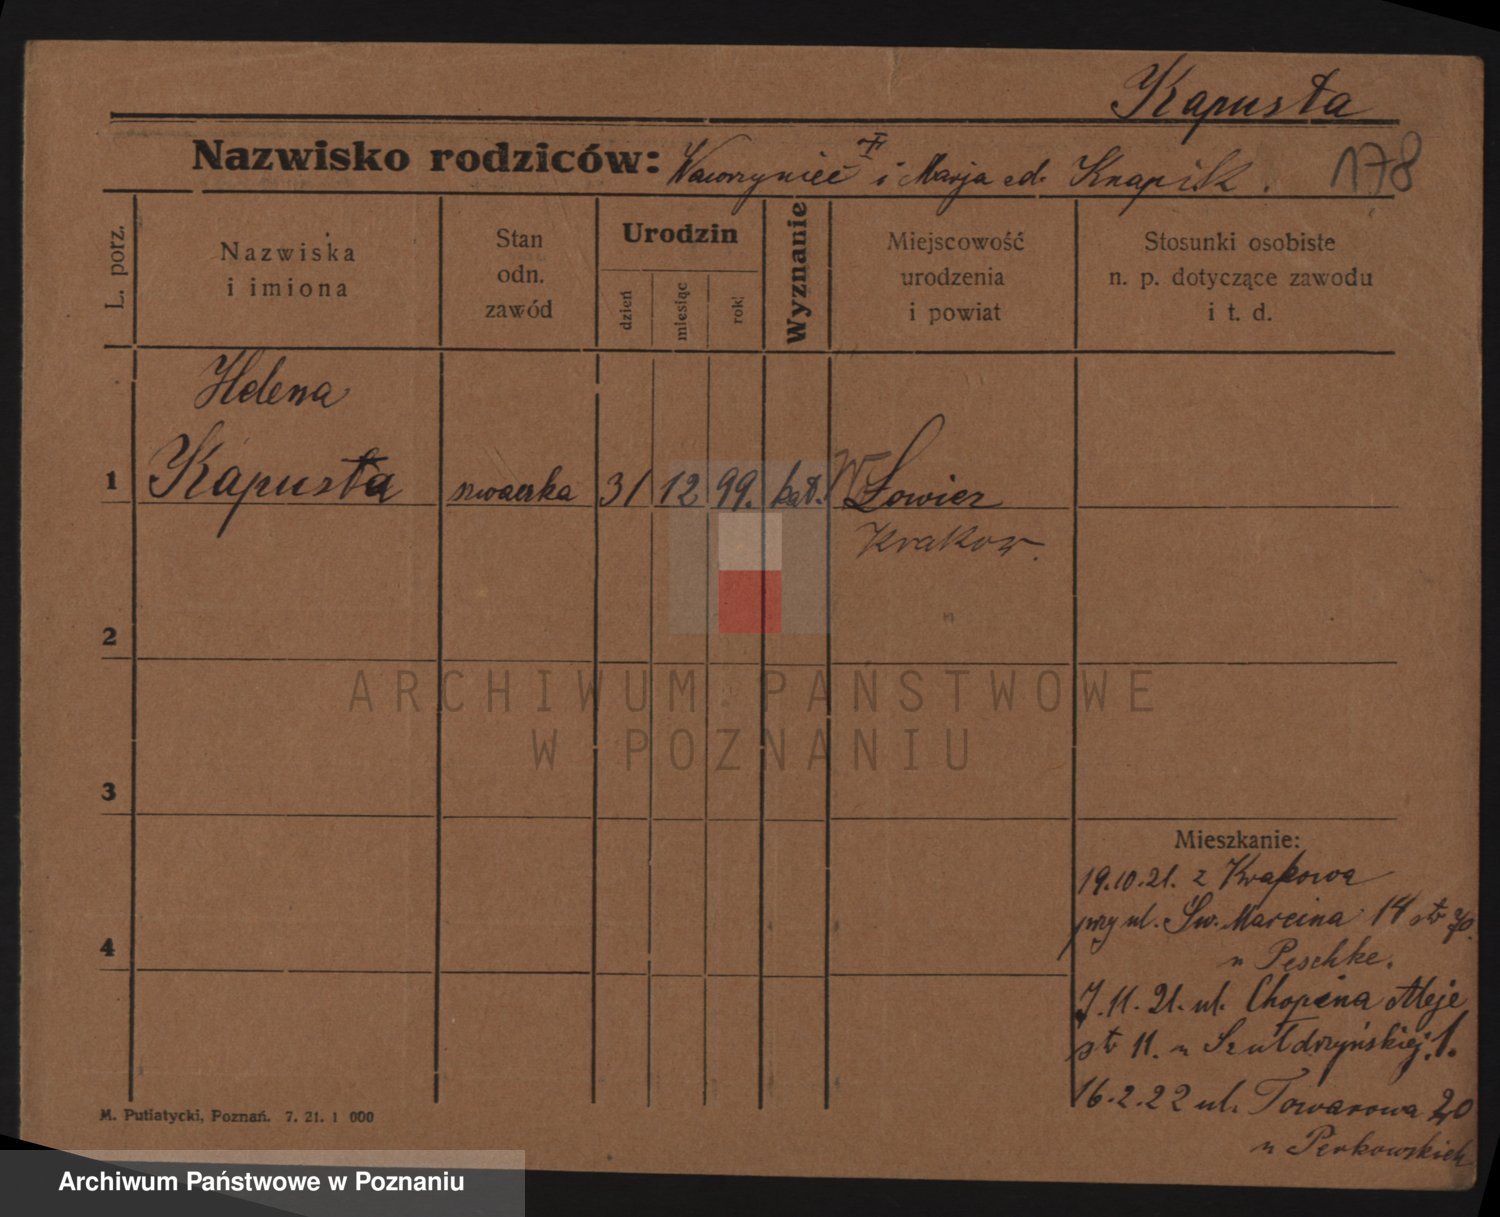 Kapusta
Nazwisko rodziców: Wawrzyniec i Marja od. Knapik.
178
L. porz.
Nazwiska
i imiona
Stan
odn.
zawód
Urodzin
dzień
miesiąc
rok
Wyznanie
Miejscowość
urodzenia
i powiat
Stosunki osobiste
n. p. dotyczące zawodu
i t. d.
Helena
1 Kapusta szwaczka 31 12 99. kat. Łowicz
Krakow.
2
ARCHIWUM PAŃSTWOWE
W POZNANIU
3
Mieszkanie:
19.10.21. z Krakowa
przy ul. Św. Marcina 14 str
4
u Peschke.
7.11.21. ul. Chopina Aleje
str 11. u Szułdrzyńskiej. 1.
16.2.22 ul. Towarowa 20
u Perkowskich
M. Putiatycki, Poznań. 7. 21. 1 000
Archiwum Państwowe w Poznaniu